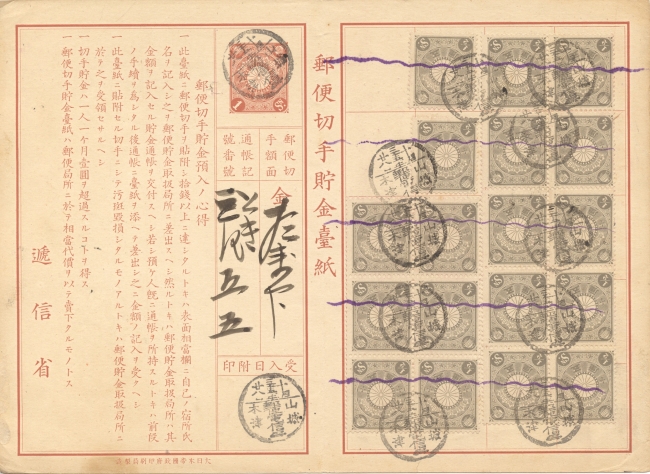 郵便切手貯金臺紙
郵便切手額面
金
通帳記號番號
五五
受入日附印
郵便切手貯金預入ノ心得
一此臺紙ニ郵便切手ヲ貼附シ拾錢以上ニ達シタルトキハ表面相當欄ニ自己ノ宿所氏
名ヲ記入シ之ヲ郵便貯金取扱局所ニ差出スヘシ然ルトキハ郵便貯金取扱局所ハ其
金額ヲ記入セル貯金通帳ヲ交付スヘシ若シ預ケ人既ニ通帳ヲ所持スルトキハ前段
ノ手續ヲ爲シタル後通帳ニ臺紙ヲ添ヘテ差出シ之ニ金額ノ記入ヲ受クヘシ
一此臺紙ニ貼附セル切手ニシテ汚斑毀損シタルモノアルトキハ郵便貯金取扱局所ニ
於テ之ヲ受領セサルヘシ
一切手貯金ハ一人一ケ月壹圓ヲ超過スルコトヲ得ス
一郵便切手貯金臺紙ハ郵便局所ニ於テ相當代價ヲ以テ賣下クルモノトス
遞信省
山城
木津